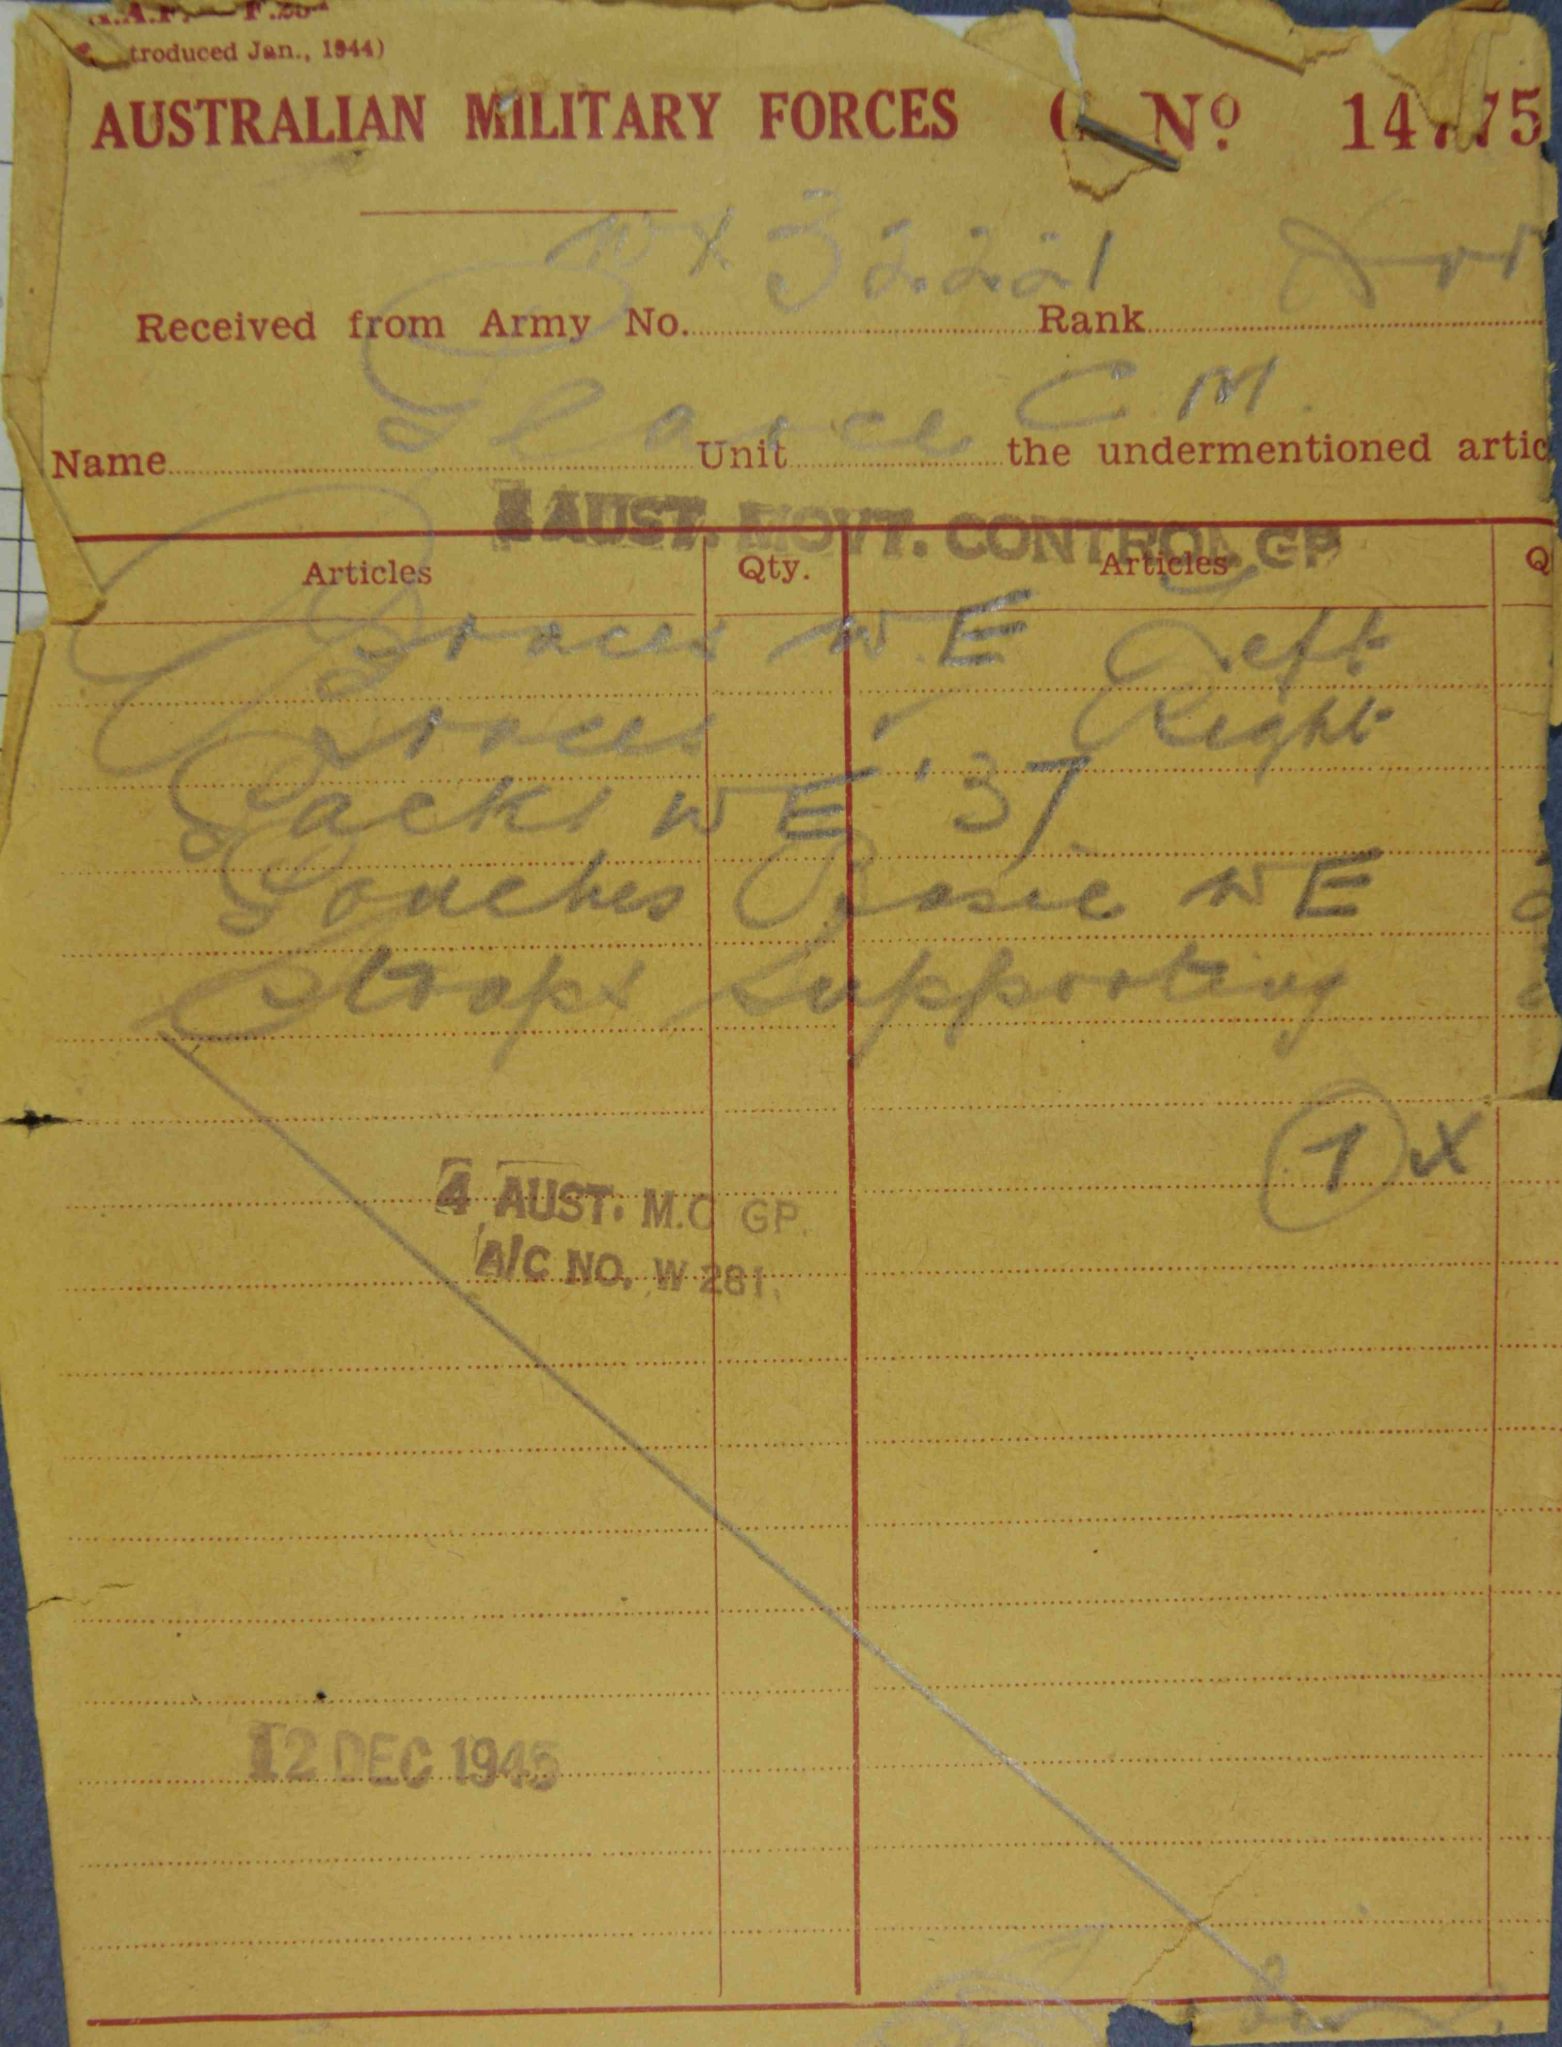 troduced Jan., 1944)
AUSTRALIAN MILITARY FORCES No 14775
WX 32221
Received from Army No. Rank
Glance C M.
Name Unit the undermentioned artic
AUST. MOVT. CONTROL GP
Articles Qty. Articles Q
Braces W E Left
Braces " Right
Packs W E '37
Pouches Basic W E
Straps Supporting
1 X
4 AUST. M.C GP.
A/C NO. W 281.
12 DEC 1945